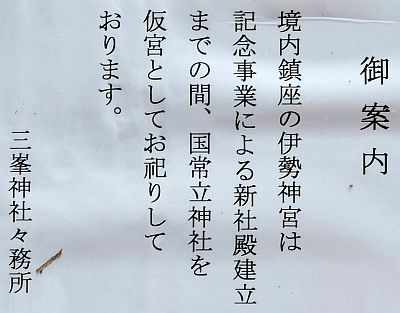 御案内
境内鎮座の伊勢神宮は
記念事業による新社殿建立
までの間、国常立神社を
仮宮としてお祀りして
おります。
三峯神社々務所